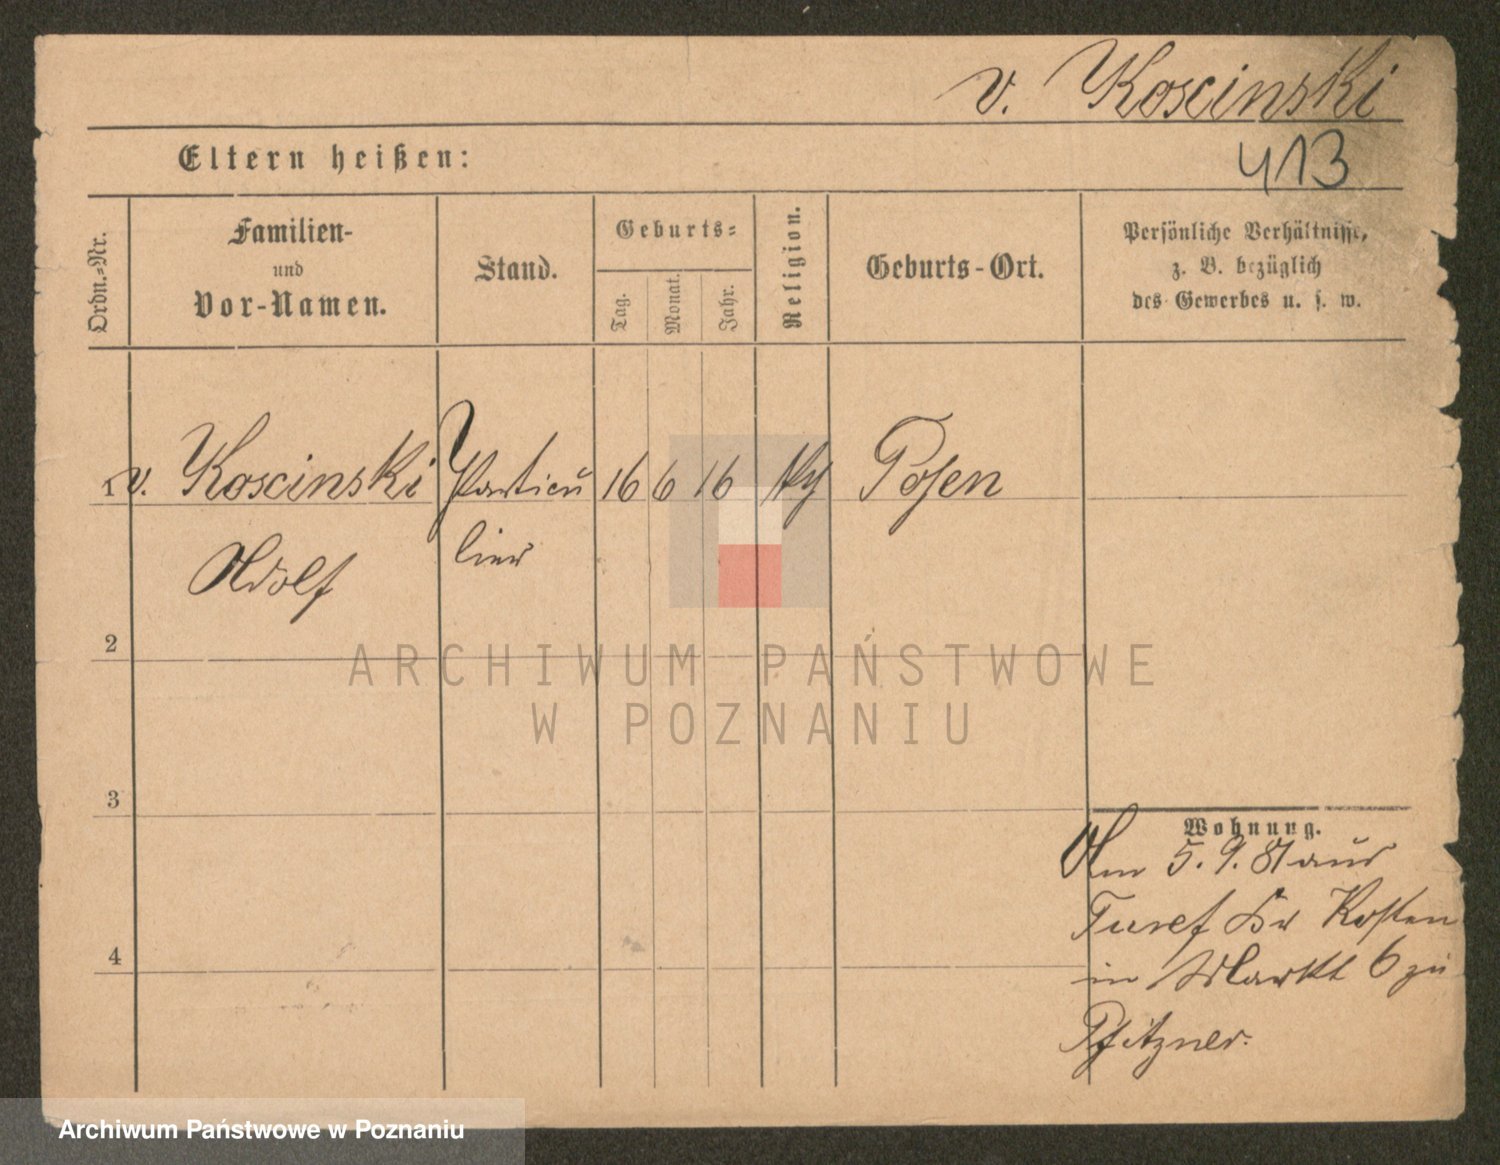 v. Koscinski
Eltern heißen:
413
Ordn.-Nr.
Familien-
und
Vor-Namen.
Stand.
Geburts-
Tag.
Monat.
Jahr.
Religion.
Geburts-Ort.
Persönliche Verhältnisse,
z. B. bezüglich
des Gewerbes u. s. w.
1 v. Koscinski Particu 16 6 16 Posen
Adolf lier
2
ARCHIWUM PAŃSTWOWE
W POZNANIU
3
4
Wohnung.
Am 5. 9. 81 aus
Kr Kosten
in Markt 6 zu
Pfitzner.
Archiwum Państwowe w Poznaniu